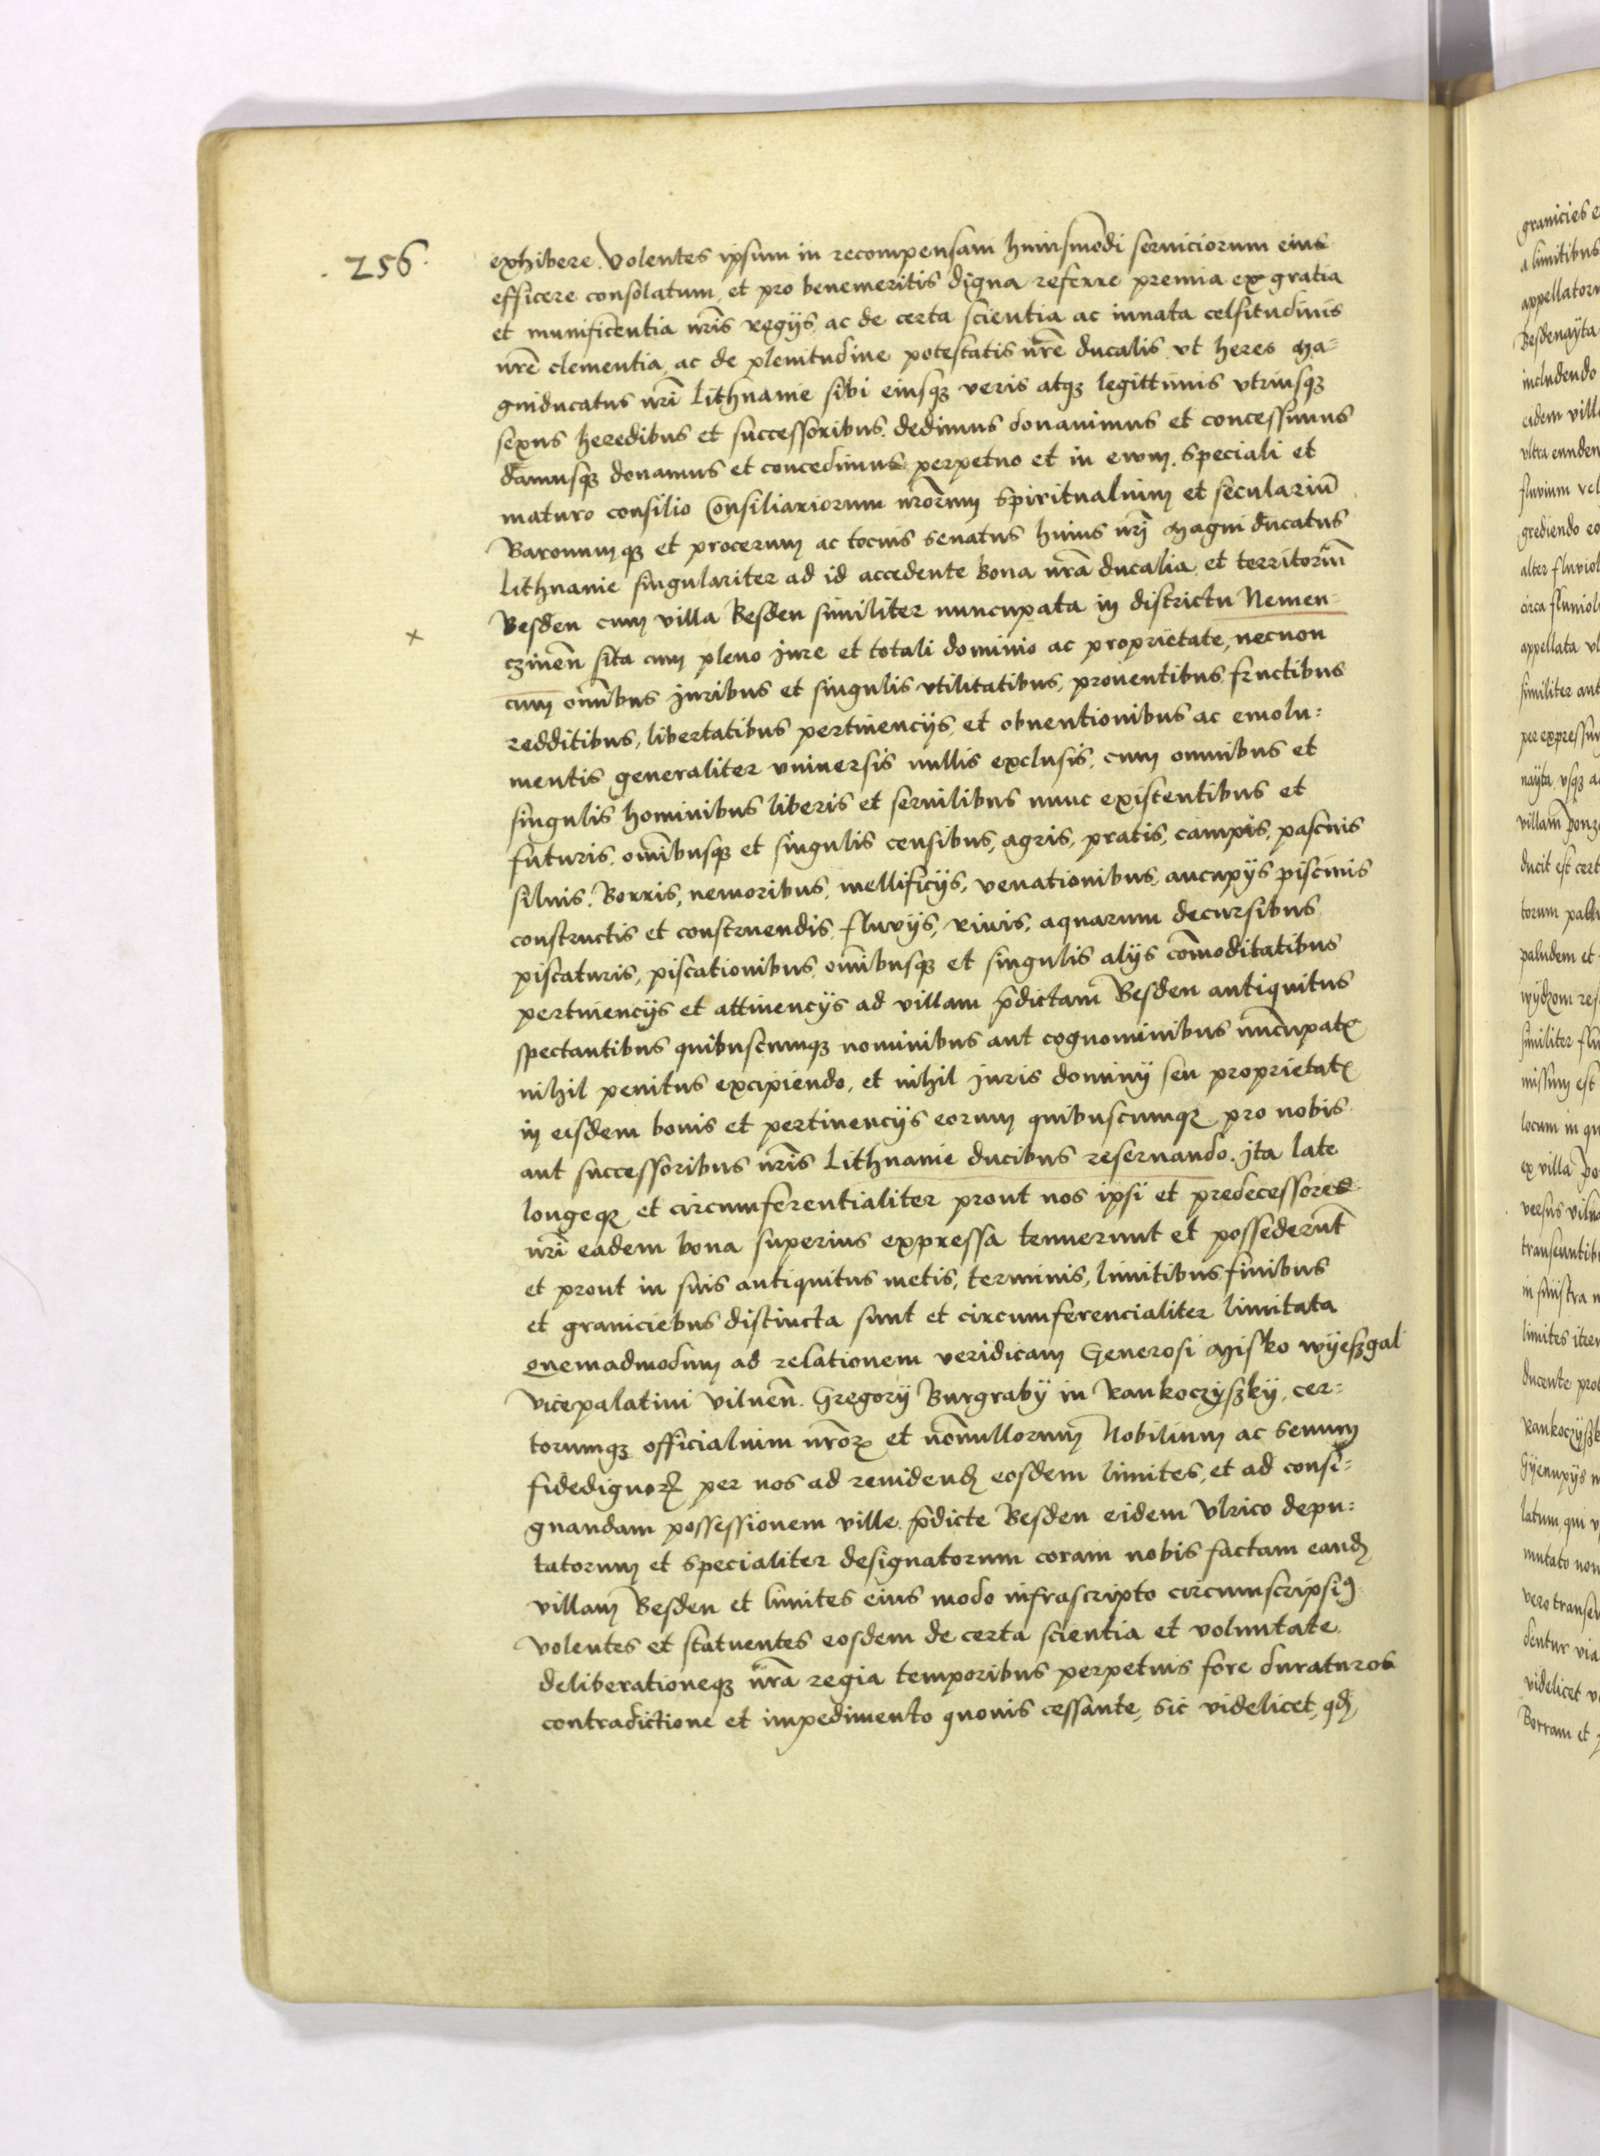 . 256 .
exhibere. Volentes ipsum in recompensam huiusmodi serviciorum eius
efficere consolatum, et pro benemeritis digna referre premia ex gratia
et munificentia nr̃is regijs, ac de certa scientia ac innata celsitudinis
nr̃e clementia, ac de plenitudine potestatis nr̃e ducalis, vt heres Ma=
gniducatus nr̃i Lithuanie sibi eiusqꝫ veris atqꝫ legittimis vtriusqꝫ
sexus heredibus et successoribus, dedimus donauimus et concessimus
damusqꝫ donamus et concedimus perpetuo et in ewm. Speciali et
maturo consilio Consiliariorum nr̃orum Spiritualium et seculariũ
Baronumqꝫ et procerum ac tocius senatus huius nr̃i Magni ducatus
Lithuanie singulariter ad id accedente Bona nr̃a ducalia et territoriũ
Besden cum villa Besden similiter nuncupata in districtu Nemen=
czineñ sita cum pleno jure et totali dominio ac proprietate, necnon
cum om̃ibus juribus et singulis vtilitatibus, prouentibus fructibus
redditibus, libertatibus pertinencijs, et obuentionibus ac emolu=
mentis generaliter vniuersis nullis exclusis, cum omnibus et
singulis hominibus liberis et seruilibus nunc existentibus et
futuris, om̃ibusqꝫ et singulis censibus, agris, pratis, campis, pascuis
siluis, Borris, nemoribus, mellificijs, venationibus, aucupijs piscinis
constructis et construendis, fluvijs, riuis, aquarum decursibus
piscaturis, piscationibus, om̃ibusqꝫ et singulis alijs com̃oditatibus
pertinencijs et attinencijs ad villam p̃dictam Besden antiquitus
spectantibus quibuscumqꝫ nominibus aut cognominibus nuncupatꝭ
nihil penitus excipiendo, et nihil juris dominij seu proprietatꝭ
in eisdem bonis et pertinencijs eorum quibuscumqꝫ pro nobis
aut successoribus nr̃is Lithuanie ducibus reseruando. Ita late
longeqꝫ et circumferentialiter prout nos ipsi et predecessores
nr̃i eadem bona superius expressa tenuerunt et possederũt
et prout in suis antiquitus metis, terminis, limitibus finibus
et graniciebus distincta sunt et circumferencialiter limitata
quemadmodum ad relationem veridicam Generosi Misko Wyeszgal
vicepalatini vilneñ. Gregorij Burgrabij in Rankoczyszky, cer=
torumqꝫ officialium nr̃oꝝ et nõnullorum Nobilium ac senum
fidedignoꝝ per nos ad reuidenđ eosdem limites, et ad consi=
gnandam possessionem ville p̃dicte Besden eidem Vlrico depu=
tatorum et specialiter designatorum coram nobis factam eanđ
villam Besden et limites eius modo infrascripto circumscripsimꝰ
volentes et statuentes eosdem de certa scientia et voluntate
deliberationeqꝫ nr̃a regia temporibus perpetuis fore duraturos
contradictione et impedimento quouis cessante, sic videlicet, qđ
+
granicies
a limitibus
Besdenayta
includendo
fluvium
grediendo
alter
appellata
similiter
nayta, vsqꝫ
villam
ducit est
paludem et
similiter
missum est
locum in
ex villa
versus
in sinistra
limites
ducente
latum, qui
mutato
vero
dentur via
videlicet
Borram et